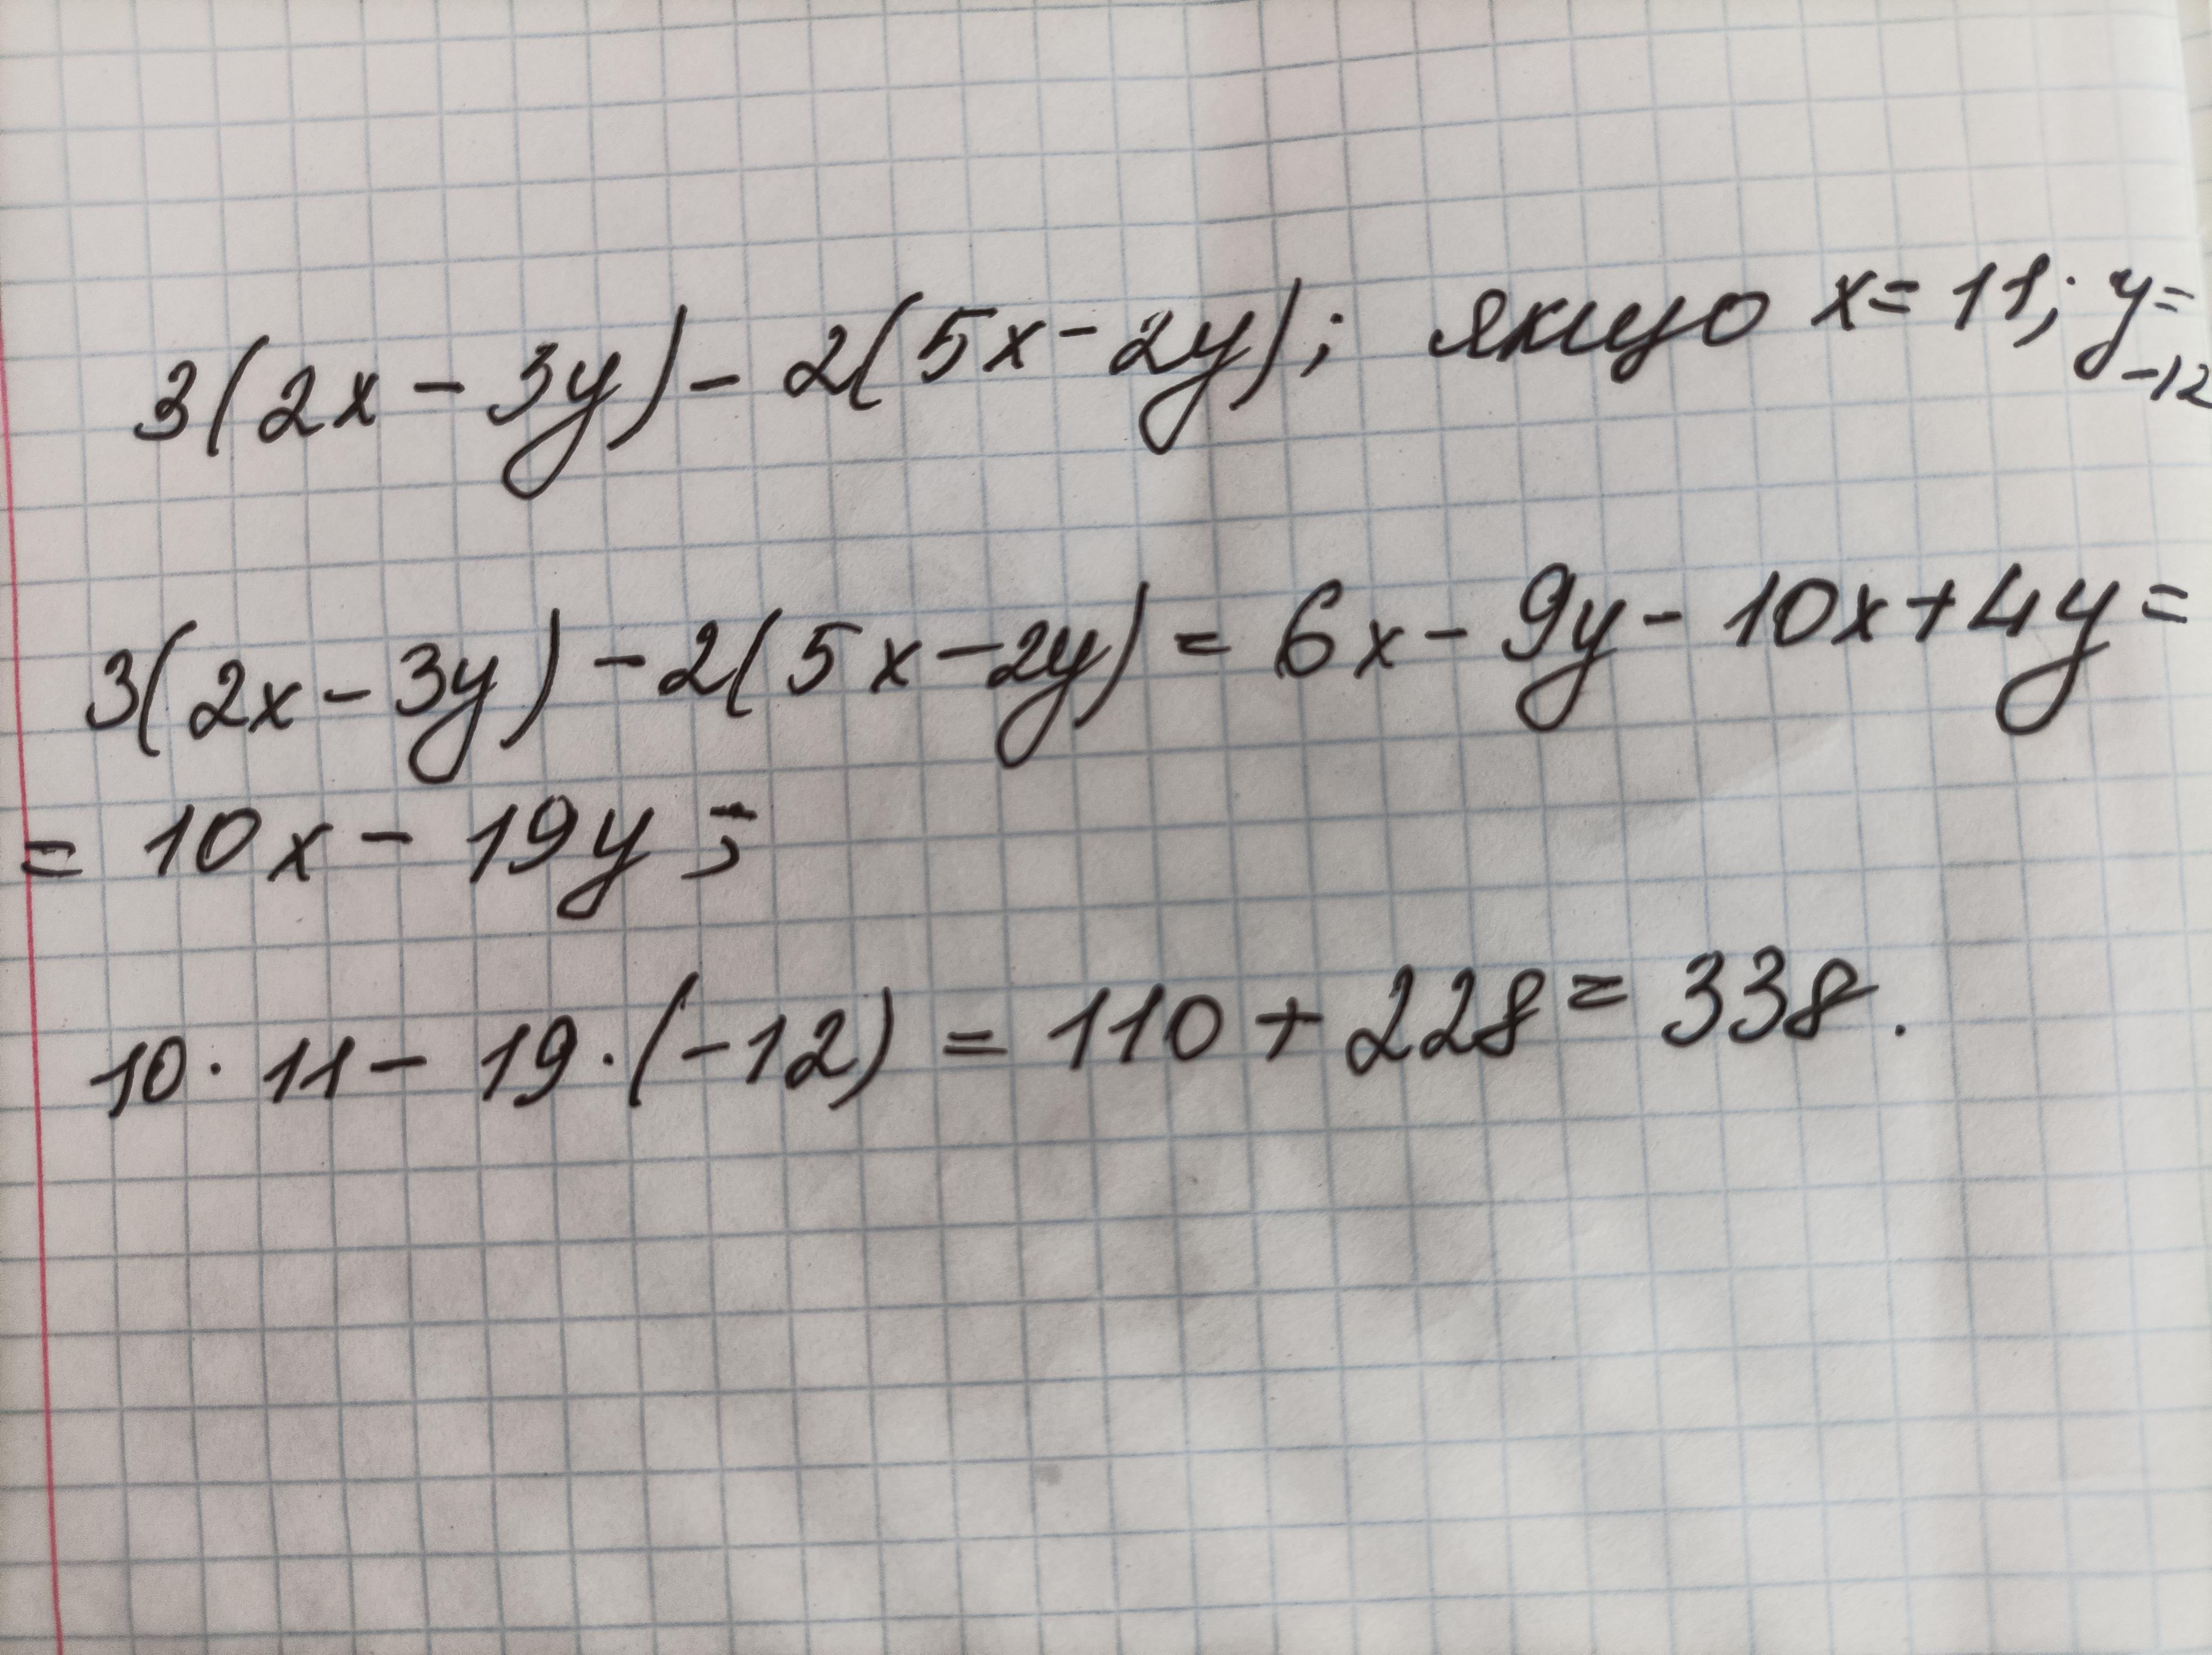 3(2x - 3y) - 2(5x - 2y); якщо x = 11; y =
-12
3(2x - 3y) - 2(5x - 2y) = 6x - 9y - 10x + 4y =
= 10x - 19y;
10 · 11 - 19 · (-12) = 110 + 228 = 338.